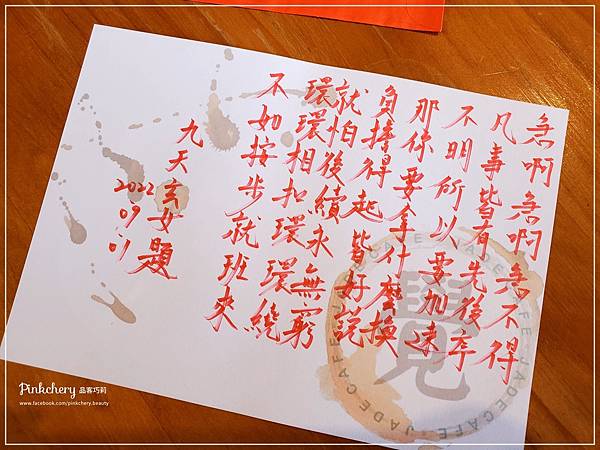 急啊急啊急不得
凡事皆有先後序
不明所以要加速
那你要拿什麼換
負擔得起皆好說
就怕後續永無窮
環環相扣環環繞
不如按步就班來
九天玄女題
2022
09.01
覺
JADECAFE JADECAFE JADECAFE
Pinkchery 品客巧莉
www.facebook.com/pinkchery.beauty